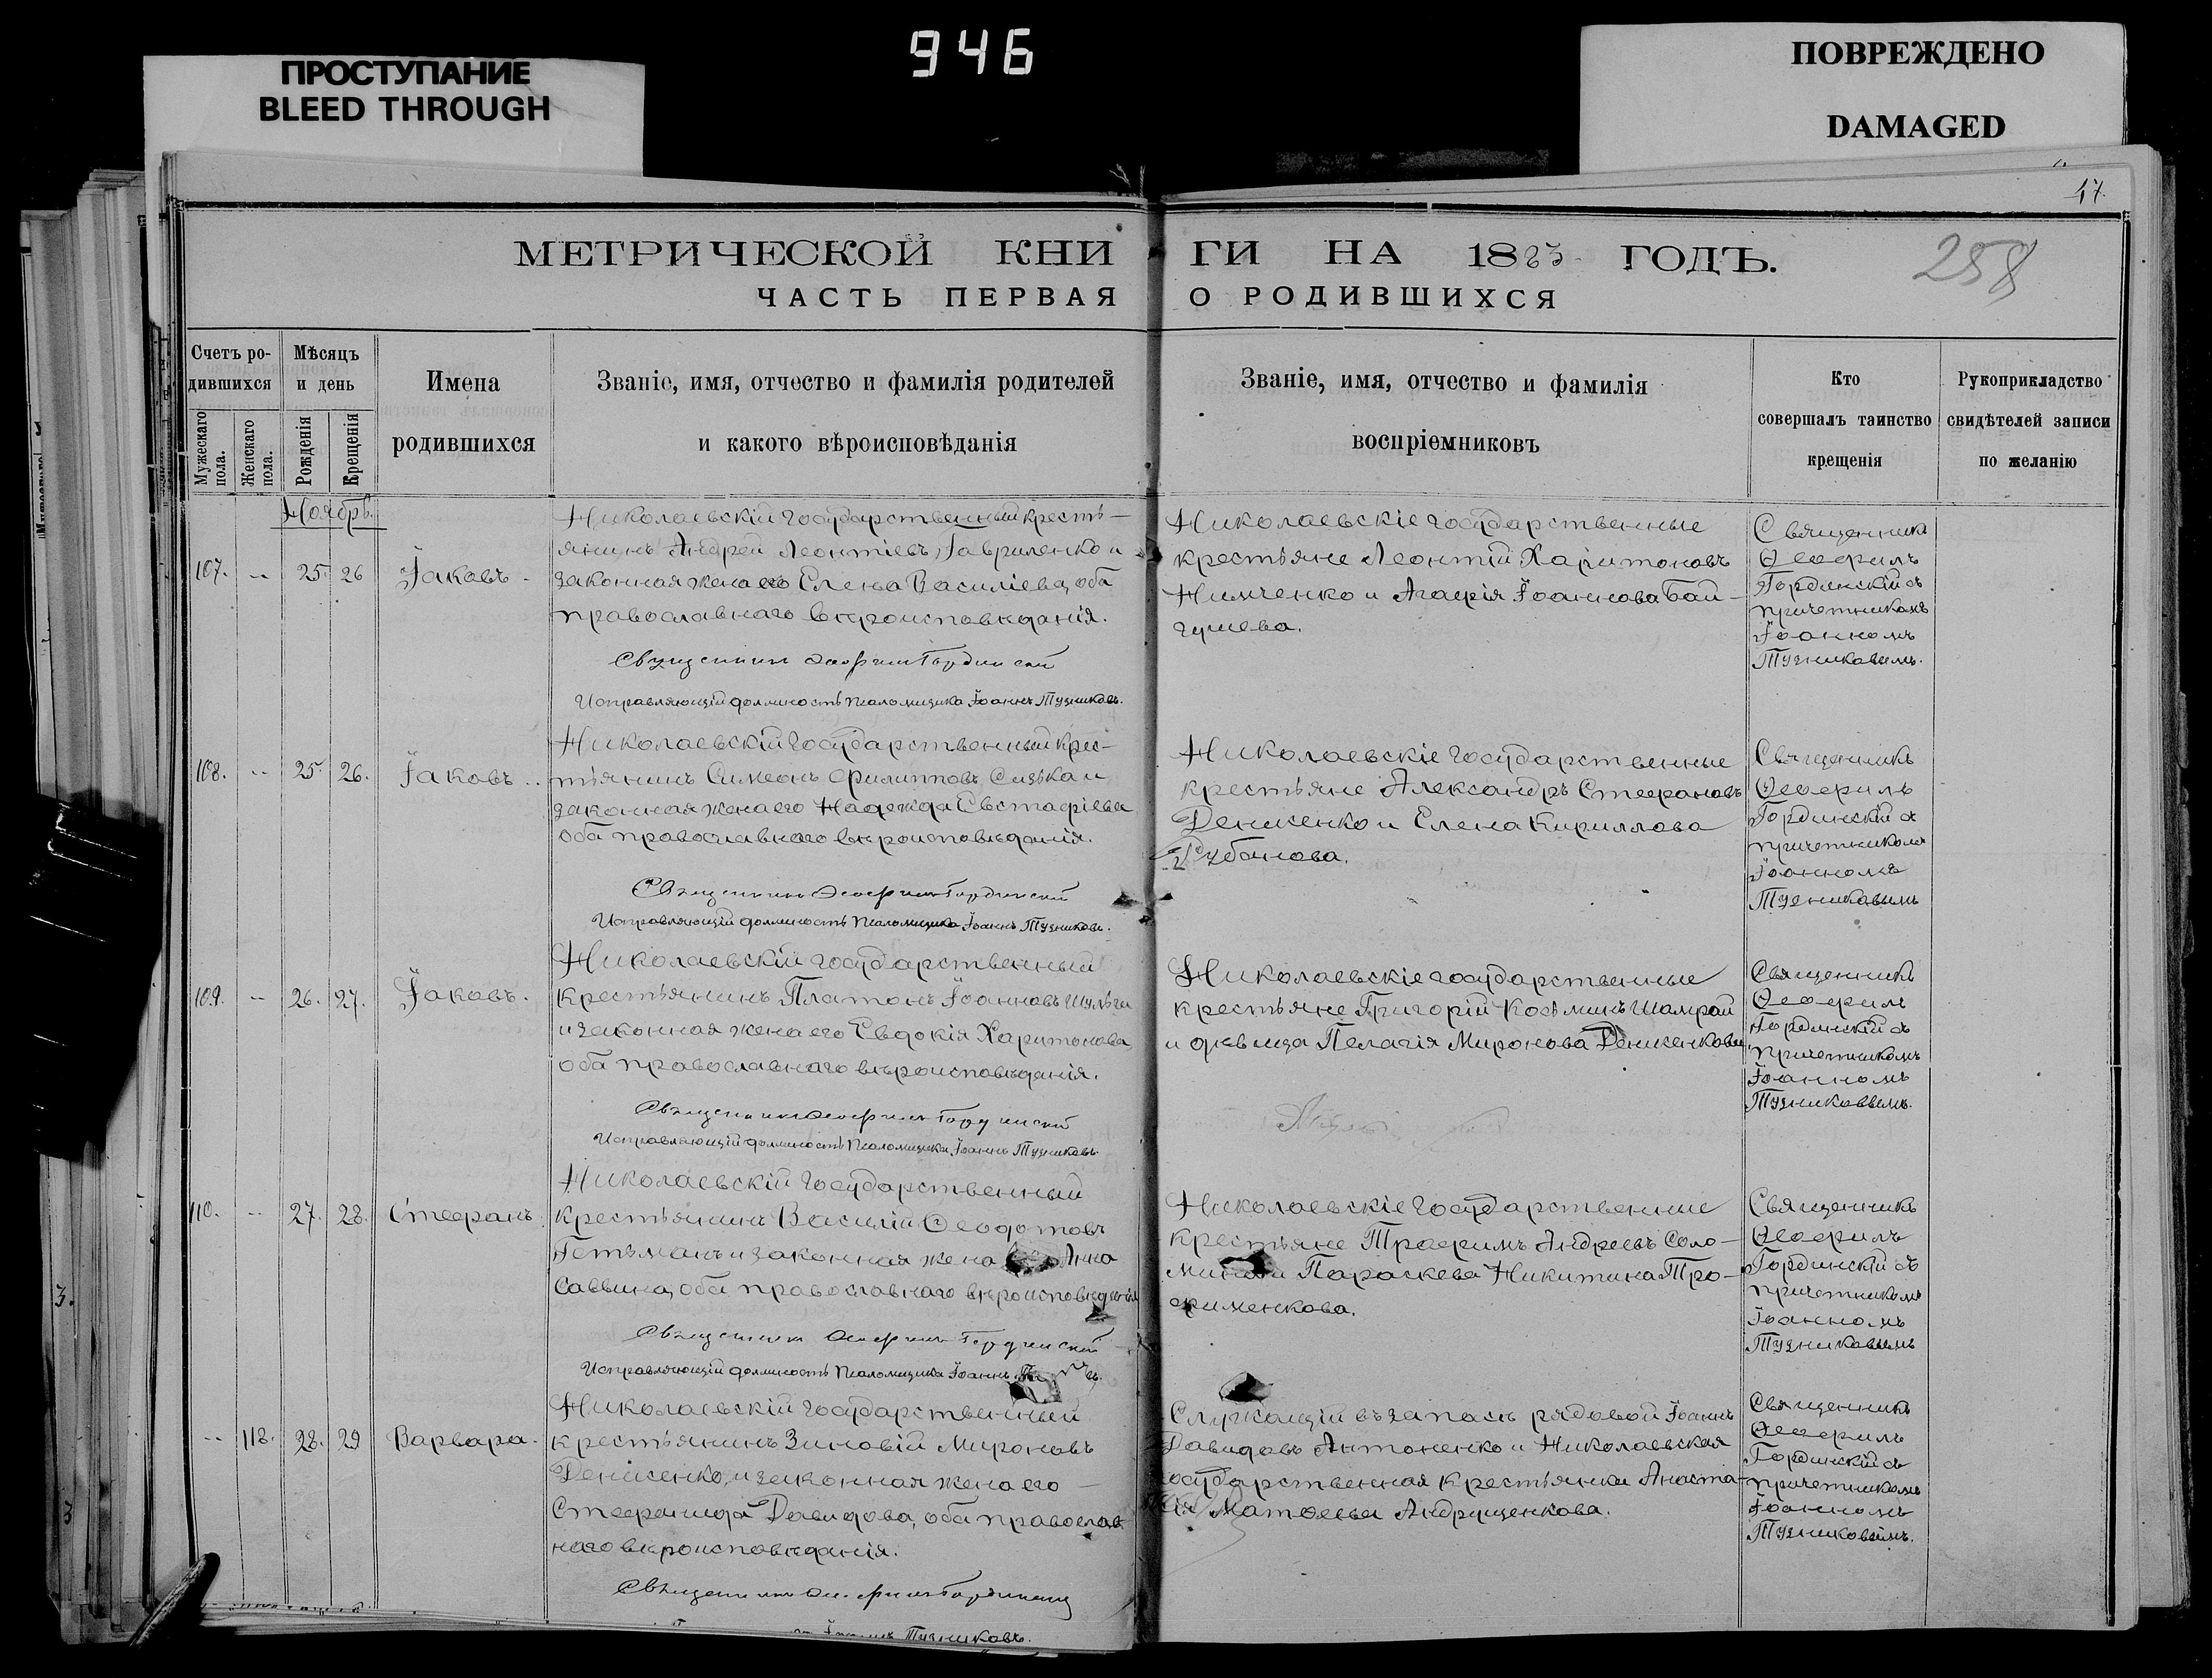 946
ПРОСТУПАНИЕ
BLEED THROUGH
ПОВРЕЖДЕНО
DAMAGED
17.
258
МЕТРИЧЕСКОЙ КНИГИ НА 1883 ГОДЪ.
ЧАСТЬ ПЕРВАЯ О РОДИВШИХСЯ
Счетъ ро-
дившихся
Мужескаго пола.
Женскаго пола.
Мѣсяцъ
и день
Рожденія
Крещенія
Имена
родившихся
Званіе, имя, отчество и фамилія родителей
и какого вѣроисповѣданія
Званіе, имя, отчество и фамилія
воспріемниковъ
Кто
совершалъ таинство
крещенія
Рукоприкладство
свидѣтелей записи
по желанію
Ноябрь.
107. -- 25. 26 Іаковъ.
Николаевскій государственный кресть-
янинъ Андрей Леонтіевъ Гавриленко и
законная жена его Елена Василіева, оба
православнаго вѣроисповѣданія.
Священникъ Ѳеофилъ Гординскій
Исправляющій должность Псаломщика Іоаннъ Тузниковъ.
Николаевскіе государственные
крестьяне Леонтій Харитоновъ
Нимченко и Агафія Іоаннова Бай-
гушева.
Священникъ
Ѳеофилъ
Гординскій съ
причетникомъ
Іоанномъ
Тузниковымъ.
108. -- 25. 26. Іаковъ..
Николаевскій государственный крес-
тьянинъ Симеонъ Филипповъ и
законная жена его Надежда Евстафіева
оба православнаго вѣроисповѣданія.
Священникъ Ѳеофилъ Гординскій
Исправляющій должность Псаломщика Іоаннъ Тузниковъ.
Николаевскіе государственные
крестьяне Александръ Стефановъ
Денисенко и Елена Кириллова
Рубанова.
Священникъ
Ѳеофилъ
Гординскій съ
причетникомъ
Іоанномъ
Тузниковымъ
109. -- 26. 27. Іаковъ.
Николаевскій государственный
крестьянинъ Платонъ Іоанновъ Шульга
и законная жена его Евдокія Харитонова,
оба православнаго вѣроисповѣданія.
Священникъ Ѳеофилъ Гординскій
Исправляющій должность Псаломщика Іоаннъ Тузниковъ
Николаевскіе государственные
крестьяне Григорій Косьминъ Шамрай
и дѣвица Пелагія Миронова Денисенкова
Священникъ
Ѳеофилъ
Гординскій съ
причетникомъ
Іоанномъ
Тузниковымъ.
110. -- 27. 28. Стефанъ
Николаевскій государственный
крестьянинъ Василій Ѳеодотовъ
Гетьманъ и законная жена Анна
Саввина, оба православнаго вѣроисповѣданія
Священникъ Ѳеофилъ Гординскій
Исправляющій должность Псаломщика Іоаннъ
Николаевскіе государственные
крестьяне Трофимъ Андреевъ Соло-
Параскева Никитина Тро-
фименкова.
Священникъ
Ѳеофилъ
Гординскій съ
причетникомъ
Іоанномъ
Тузниковымъ
-- 118. 28. 29 Варвара.
Николаевскій государственный
крестьянинъ Зиновій Мироновъ
Денисенко, и законная жена его
Стефанида Давидова, оба православ-
наго вѣроисповѣданія.
Священникъ Ѳеофилъ Гординскій
Тузниковъ.
Служащій въ запасѣ рядовой Іоаннъ
Давидовъ Антоненко и Николаевская
государственная крестьянка Анаста-
сія Матѳеева Андрущенкова.
Священникъ
Ѳеофилъ
Гординскій съ
причетникомъ
Іоанномъ
Тузниковымъ.